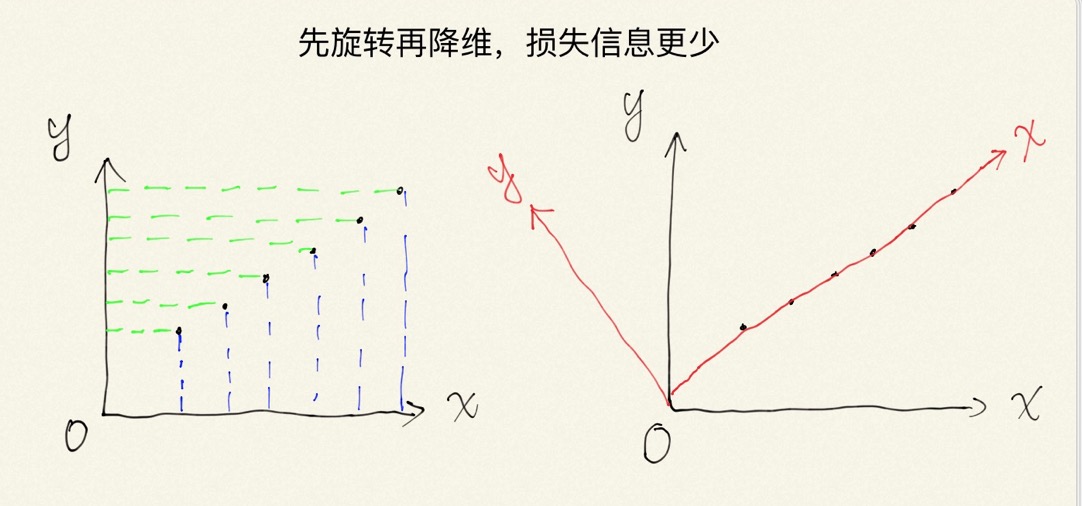 先旋转再降维，损失信息更少
y
x
0
y
x
y
x
0